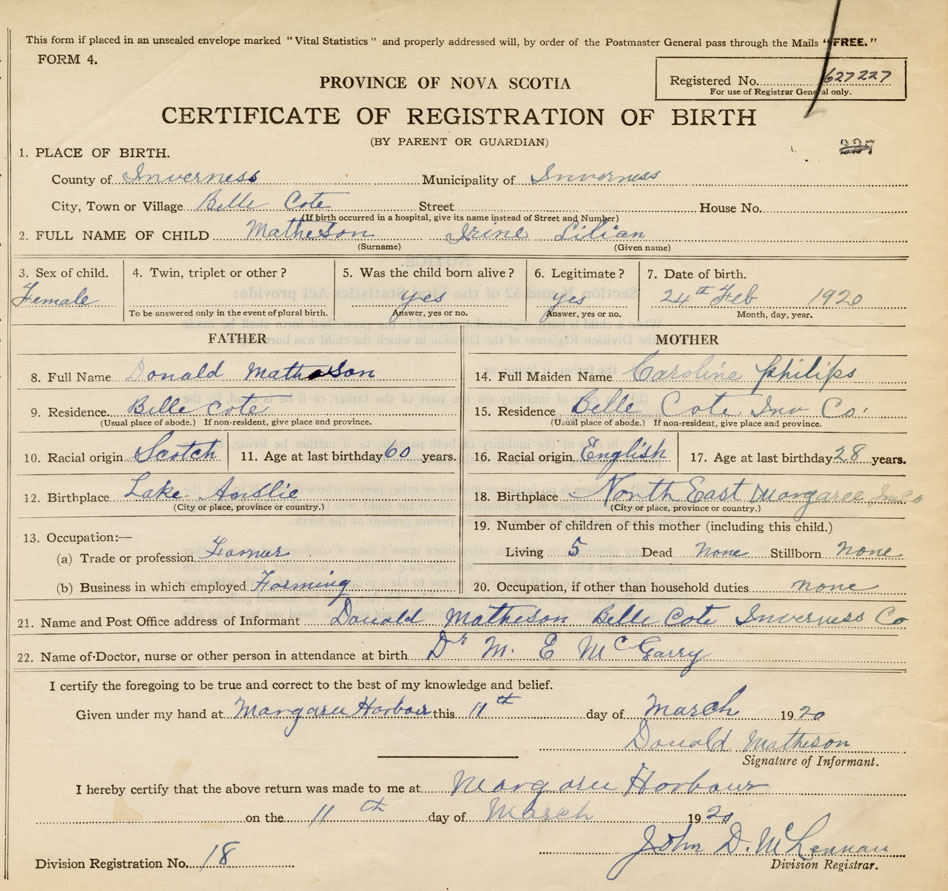 This form if placed in an unsealed envelope marked "Vital Statistics" and properly addressed will, by order of the Postmaster General pass through the Mails "FREE."
FORM 4.
Registered No. 627227
For use of Registrar General only.
PROVINCE OF NOVA SCOTIA
CERTIFICATE OF REGISTRATION OF BIRTH
(BY PARENT OR GUARDIAN)
1. PLACE OF BIRTH.
County of Inverness Municipality of Inverness
City, Town or Village Belle Cote Street House No.
(If birth occurred in a hospital, give its name instead of Street and Number)
2. FULL NAME OF CHILD Matheson Irine Lilian
(Surname) (Given name)
3. Sex of child. 4. Twin, triplet or other? 5. Was the child born alive? 6. Legitimate? 7. Date of birth.
Female yes yes 24th Feb 1920
To be answered only in the event of plural birth. Answer, yes or no. Answer, yes or no. Month, day, year.
FATHER MOTHER
8. Full Name Donald Matheson 14. Full Maiden Name Caroline Philips
9. Residence. Belle Cote 15. Residence Belle Cote Inv Co.
(Usual place of abode.) If non-resident, give place and province. (Usual place of abode.) If non-resident, give place and province.
10. Racial origin Scotch 11. Age at last birthday 60 years. 16. Racial origin English 17. Age at last birthday 28 years.
12. Birthplace Lake Anslie 18. Birthplace North East Margaree
(City or place, province or country.) (City or place, province or country.)
13. Occupation:— 19. Number of children of this mother (including this child.)
(a) Trade or profession Farmer Living 5 Dead None Stillborn none
(b) Business in which employed Farming 20. Occupation, if other than household duties none
21. Name and Post Office address of Informant Donald Matheson Belle Cote Inverness Co
22. Name of Doctor, nurse or other person in attendance at birth Dr M. E McGarry
I certify the foregoing to be true and correct to the best of my knowledge and belief.
Given under my hand at Margaree Harbour this 11th day of March 1920
Donald Matheson
Signature of Informant.
I hereby certify that the above return was made to me at Margaree Harbour
on the 11th day of March 1920
John D. McLennan
Division Registration No. 18 Division Registrar.